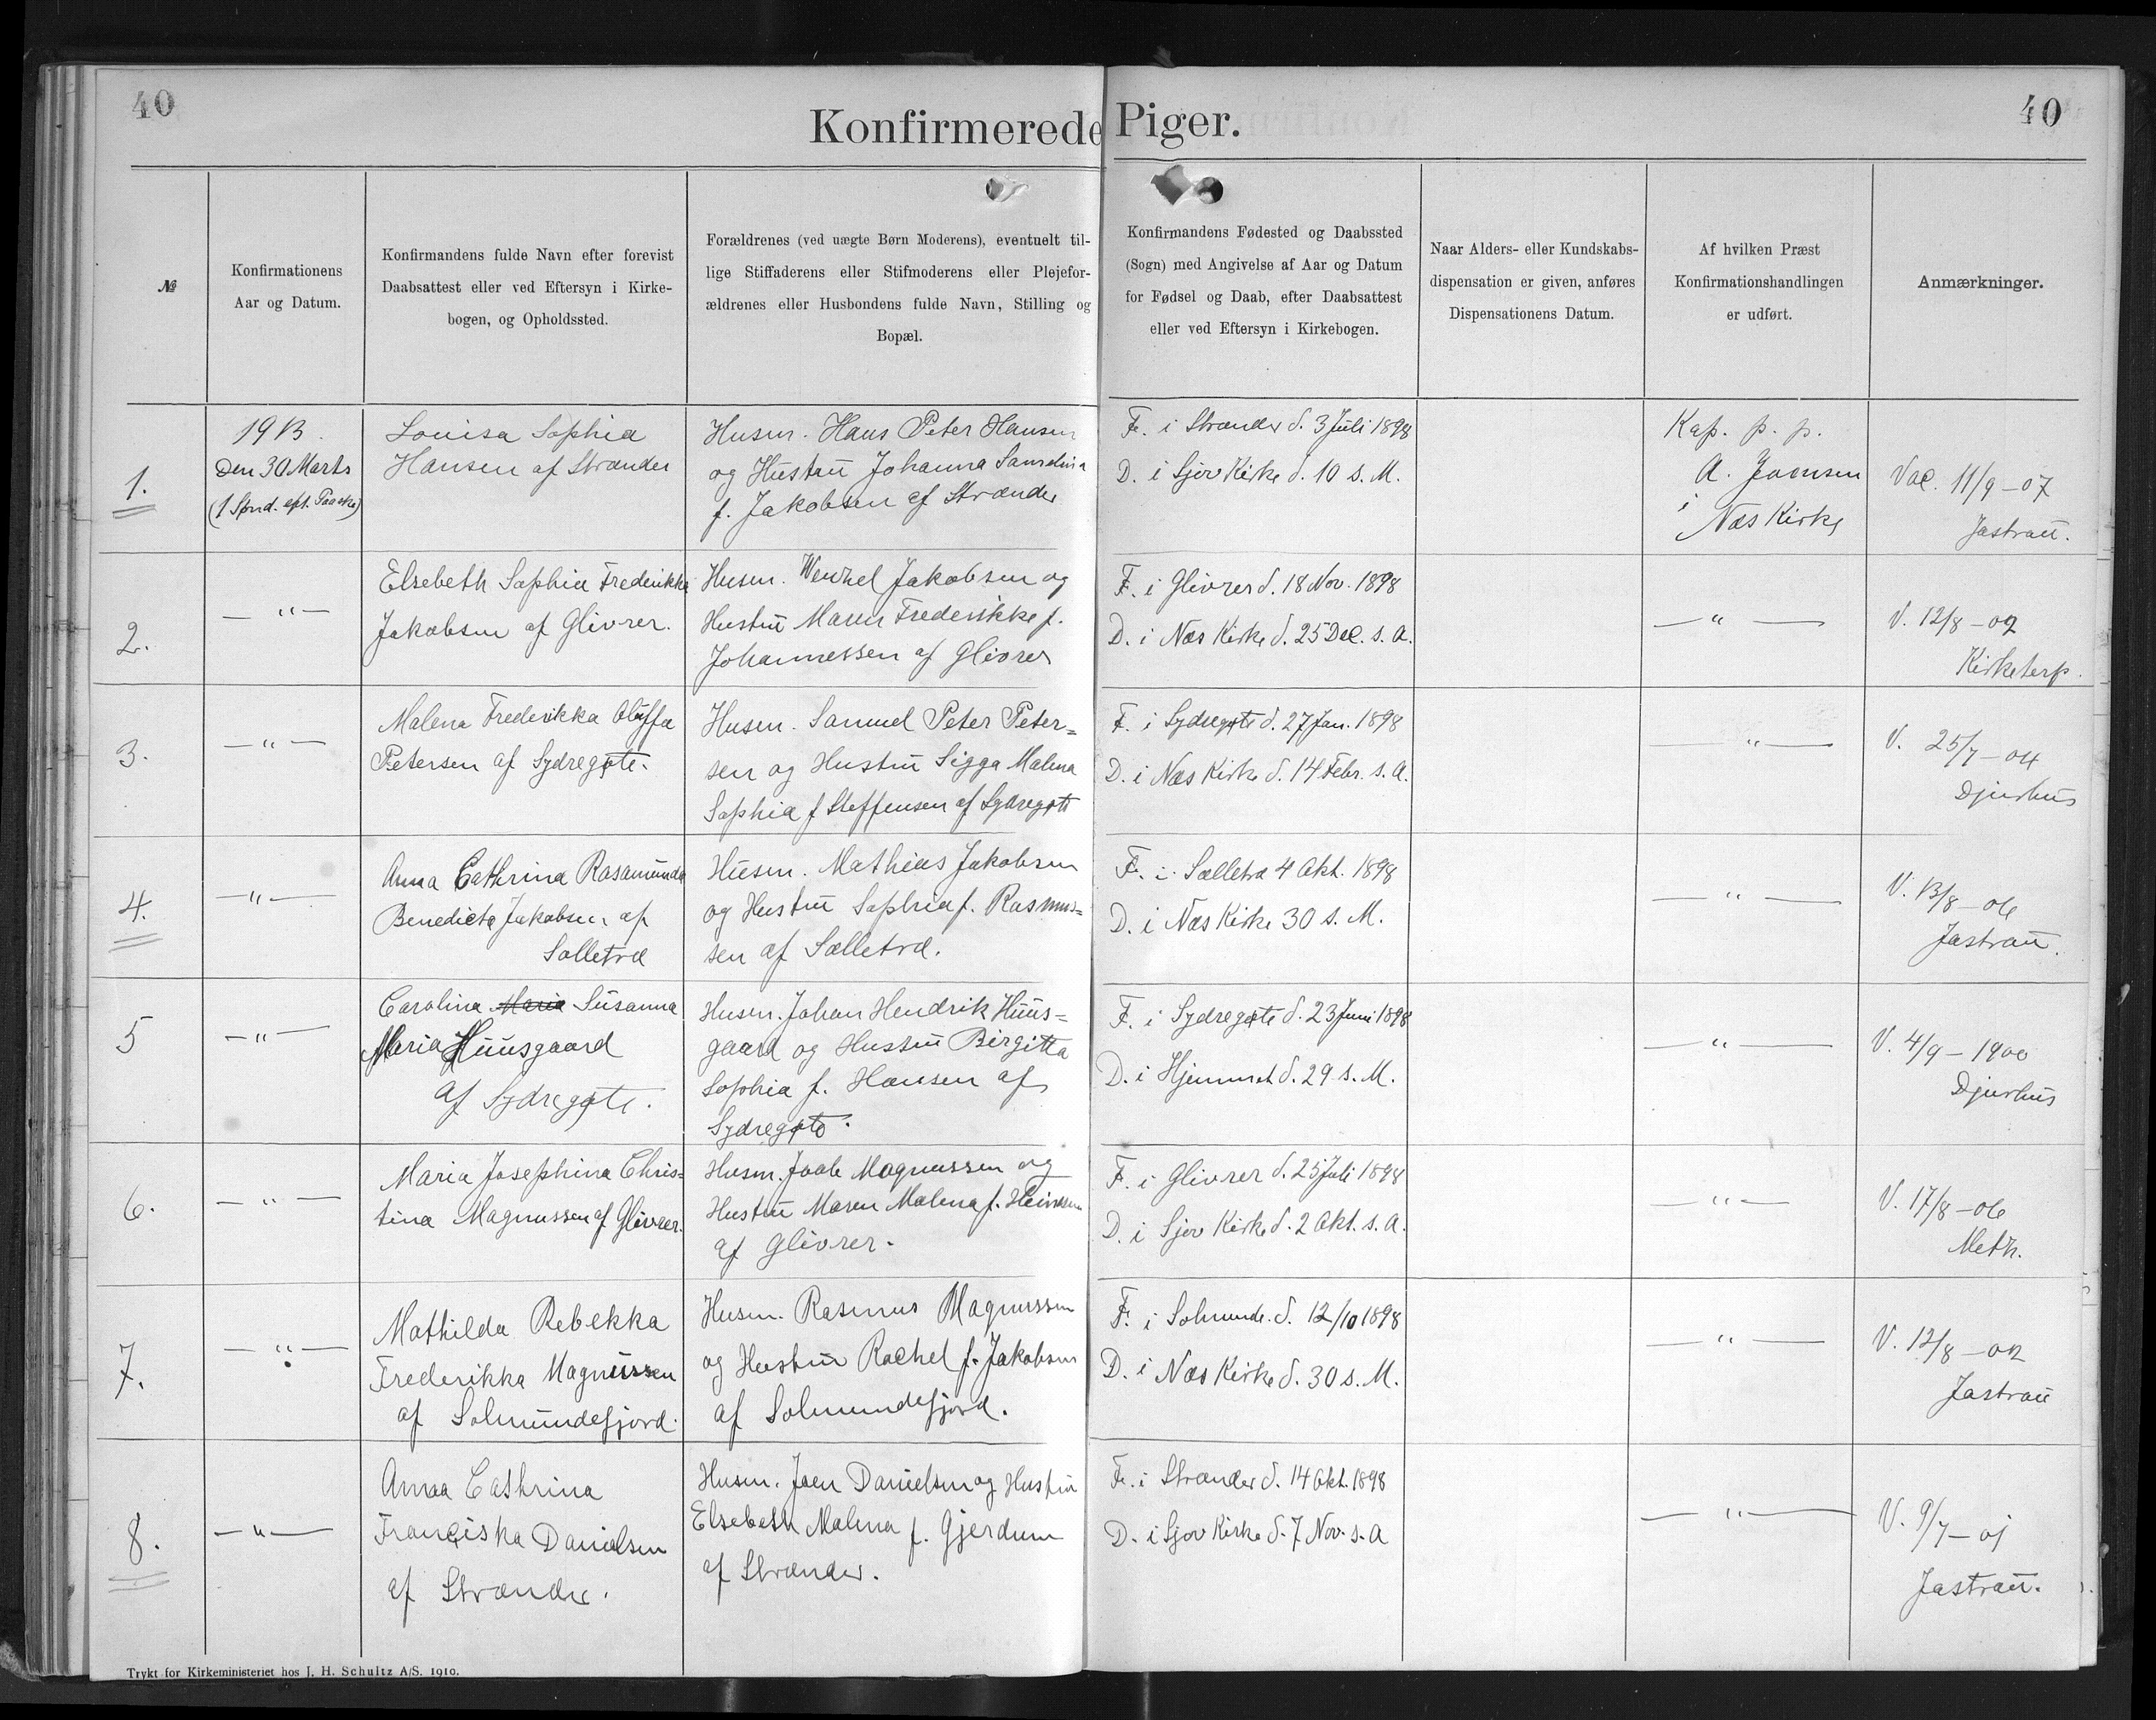 40
40
Konfirmerede Piger.
№
Konfirmationens
Aar og Datum.
Konfirmandens fulde Navn efter forevist
Daabsattest eller ved Eftersyn i Kirke-
bogen, og Opholdssted.
Forældrenes (ved uægte Børn Moderens), eventuelt til-
lige Stiffaderens eller Stifmoderens eller Plejefor-
ældrenes eller Husbondens fulde Navn, Stilling og
Bopæl.
Konfirmandens Fødested og Daabssted
(Sogn) med Angivelse af Aar og Datum
for Fødsel og Daab, efter Daabsattest
eller ved Eftersyn i Kirkebogen.
Naar Alders- eller Kundskabs-
dispensation er given, anføres
Dispensationens Datum.
Af hvilken Præst
Konfirmationshandlingen
er udført.
Anmærkninger.
1.
1913.
Den 30 Marts
(1 Sønd. eft. Paaske)
Louisa Sophia
Hansen af Strænder
Husm. Hans Peter Hansen
og Hustru Johanna
f. Jakobsen af Strænder
F. i Strænder d. 3 Juli 1898
D. i Sjov Kirke d. 10 s. M.
Kap. p. p.
A. Joensen
i
Næs Kirke
Vac. 11/9-07
Jastrau.
2.
— " —
Elsebeth Sophia Frederikke
Jakobsen af Glivrer.
Husm. Wenzel Jakobsen og
Hustru Maren Frederikke f.
Johannessen af Glivrer
F. i Glivrer d. 18 Nov. 1898
D. i Næs Kirke d. 25 Dec. s. A.
— " —
V. 12/8-02
Kirketerp.
3.
— " —
Malena Frederikka Oluffa
Petersen af Sydregøte.
Husm. Samuel Peter Peter=
sen og Hustru Sigga Malena
Sophia f. Steffensen af Sydregøte
F. i Sydregøte d. 27 Jan. 1898
D. i Næs Kirke d. 14 Febr. s. A.
— " —
V. 25/7-04
Djurhus
4.
— " —
Anna Cathrina Rasamunda
Benedicta Jakobsen af
Salletræ
Husm. Mathias Jakobsen
og Hustru Sophia f. Rasmus=
sen af Salletræ.
F. i Salletræ 4 Okt. 1898
D. i Næs Kirke 30 s. M.
— " —
V. 13/8-06
Jastrau.
5
— " —
Carolina Maria Susanna
Maria Huusgaard
af Sydregøte.
Husm. Johan Hendrik Huus=
gaard og Hustru Birgitta
Sophia f. Hansen af
Sydregøte.
F. i Sydregøte d. 23 Juni 1898
D. i Hjemmet d. 29 s. M.
— " —
V. 4/9-1900
Djurhus
6.
— " —
Maria Josephina Chris=
tina Magnussen af Glivrer.
Husm. Joab Magnussen og
Hustru Maren Malena f. Heinesen
af Glivrer.
F. i Glivrer d. 25 Juli 1898
D. i Sjov Kirke d. 2 Okt. s. A.
— " —
V. 17/8-06
Meth.
7.
— " —
Mathilda Rebekka
Frederikka Magnussen
af Solmundefjord.
Husm. Rasmus Magnussen
og Hustru Rachel f. Jakobsen
af Solmundefjord.
F. i Solmunde. d. 12/10 1898
D. i Næs Kirke d. 30 s. M.
— " —
V. 12/8-02
Jastrau
8.
— " —
Anna Cathrina
Franciska Danielsen
af Strænder.
Husm. Joen Danielsen og Hustru
Elsebeth Malena f. Gjerdum
af Strænder.
F. i Strænder d. 14 Okt. 1898
D. i Sjov Kirke d. 7 Nov. s. A
— " —
V. 9/7-01
Jastrau.
Trykt for Kirkeministeriet hos J. H. Schultz A/S. 1910.